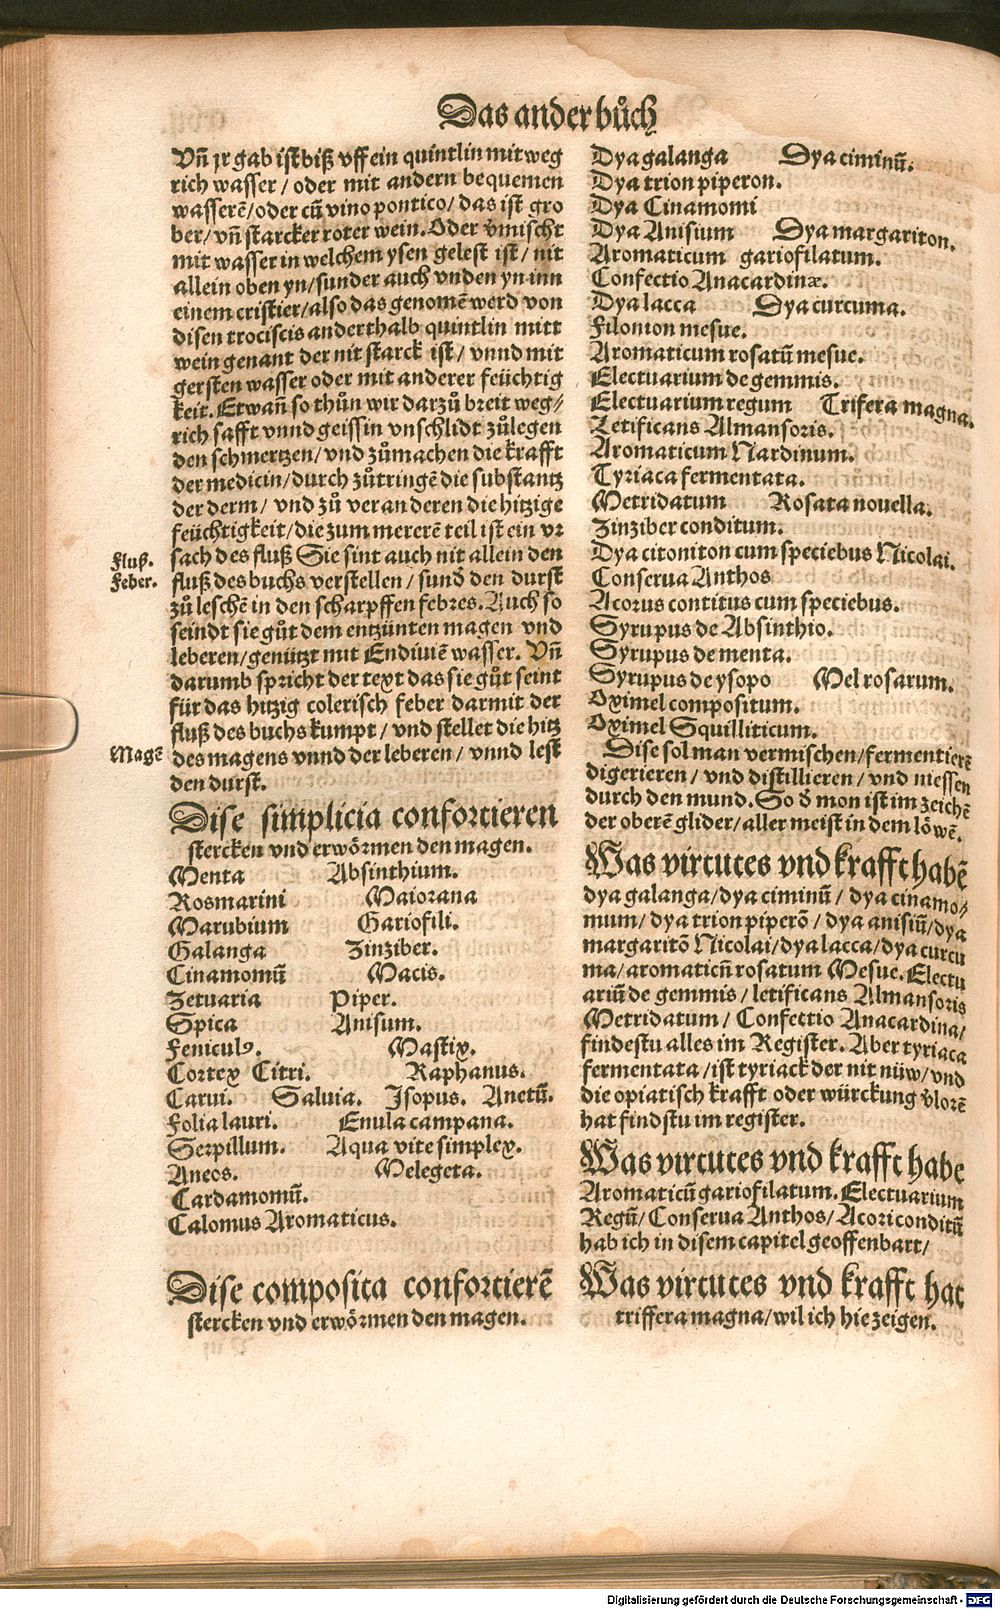 Das ander bůch
Vñ jr gab ist biß vff ein quintlin mit weg
rich wasser / oder mit andern bequemen
wasserē / oder cū vino pontico / das ist gro
ber / vñ starcker roter wein. Oder v̄mischt
mit wasser in welchem ysen gelest ist / nit
allein oben yn / sunder auch vnden yn inn
einem cristier / also das genomē werd von
disen trociscis anderthalb quintlin mitt
wein genant der nit starck ist / vnnd mit
gersten wasser oder mit anderer feüchtig
keit. Etwañ so thůn wir darzů breit weg /
rich safft vnnd geissin vnschlidt zůlegen
den schmertzen / vnd zůmachen die krafft
der medicin / durch zůtringē die substantz
der derm / vnd zů veranderen die hitzige
feüchtigkeit / die zum mererē teil ist ein vr
sach des fluß Sie sint auch nit allein den
Fluß.
Feber.
fluß des buchs verstellen / sund̄ den durst
zů leschē in den scharpffen febres. Auch so
seindt sie gůt dem entzünten magen vnd
leberen / genützt mit Endiuiē wasser. Vñ
darumb spricht der text das sie gůt seint
für das hitzig colerisch feber darmit der
fluß des buchs kumpt / vnd stellet die hitz
Magē
des magens vnnd der leberen / vnnd lest
den durst.
Dise simplicia confortieren
stercken vnd erwörmen den magen.
Menta Absinthium.
Rosmarini Maiorana
Marubium Gariofili.
Galanga Zinziber.
Cinamomū Macis.
Zetuaria Piper.
Spica Anisum.
Feniculꝰ. Mastix.
Cortex Citri. Raphanus.
Carui. Saluia. Isopus. Anetū.
Folia lauri. Enula campana.
Serpillum. Aqua vite simplex.
Aneos. Melegeta.
Cardamomū.
Calomus Aromaticus.
Dise composita confortierē
stercken vnd erwörmen den magen.
Dya galanga Dya ciminū.
Dya trion piperon.
Dya Cinamomi
Dya Anisium Dya margariton.
Aromaticum gariofilatum.
Confectio Anacardinæ.
Dya lacca Dya curcuma.
Filonion mesue.
Aromaticum rosatū mesue.
Electuarium de gemmis.
Electuarium regum Trifera magna.
Letificans Almansoris.
Aromaticum Nardinum.
Tyriaca fermentata.
Metridatum Rosata nouella.
Zinziber conditum.
Dya citoniton cum speciebus Nicolai.
Conserua Anthos
Acorus contitus cum speciebus.
Syrupus de Absinthio.
Syrupus de menta.
Syrupus de ysopo Mel rosarum.
Oximel compositum.
Oximel Squilliticum.
Dise sol man vermischen / fermentierē
digerieren / vnd distillieren / vnd niessen
durch den mund. So d̄ mon ist im zeichē
der oberē glider / aller meist in dem löwē.
Was virtutes vnd krafft habē
dya galanga / dya ciminū / dya cinamo /
mum / dya trion piperō / dya anisiū / dya
margaritō Nicolai / dya lacca / dya curcu
ma / aromaticū rosatum Mesue. Electu
ariū de gemmis / letificans Almansoris
Metridatum / Confectio Anacardina /
findestu alles im Register. Aber tyriaca
fermentata / ist tyriack der nit nüw / vnd
die opiatisch krafft oder würckung v̄lorē
hat findstu im register.
Was virtutes vnd krafft habe
Aromaticū gariofilatum. Electuarium
Regū / Conserua Anthos / Acori conditū
hab ich in disem capitel geoffenbart /
Was virtutes vnd krafft hat
triffera magna / wil ich hie zeigen.
Digitalisierung gefördert durch die Deutsche Forschungsgemeinschaft - DFG